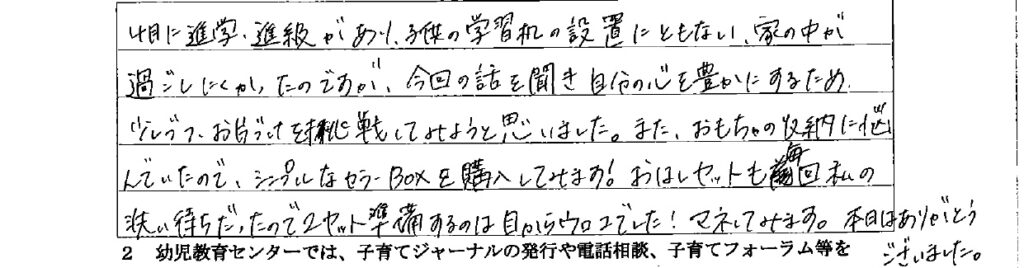 4月に進学・進級があり、子供の学習机の設置にともない、家の中が
過ごしにくかったのですが、今回の話を聞き自分の心を豊かにするため
少しずつ、お片づけを挑戦してみようと思いました。また、おもちゃの収納に悩
んでいたので、シンプルなカラーBoxを購入してみます！おはしセットも毎回私の
洗い待ちだったので2セット準備するのは目からウロコでした！マネしてみます。本日はありがとう
ございました。
2 幼児教育センターでは、子育てジャーナルの発行や電話相談、子育てフォーラム等を